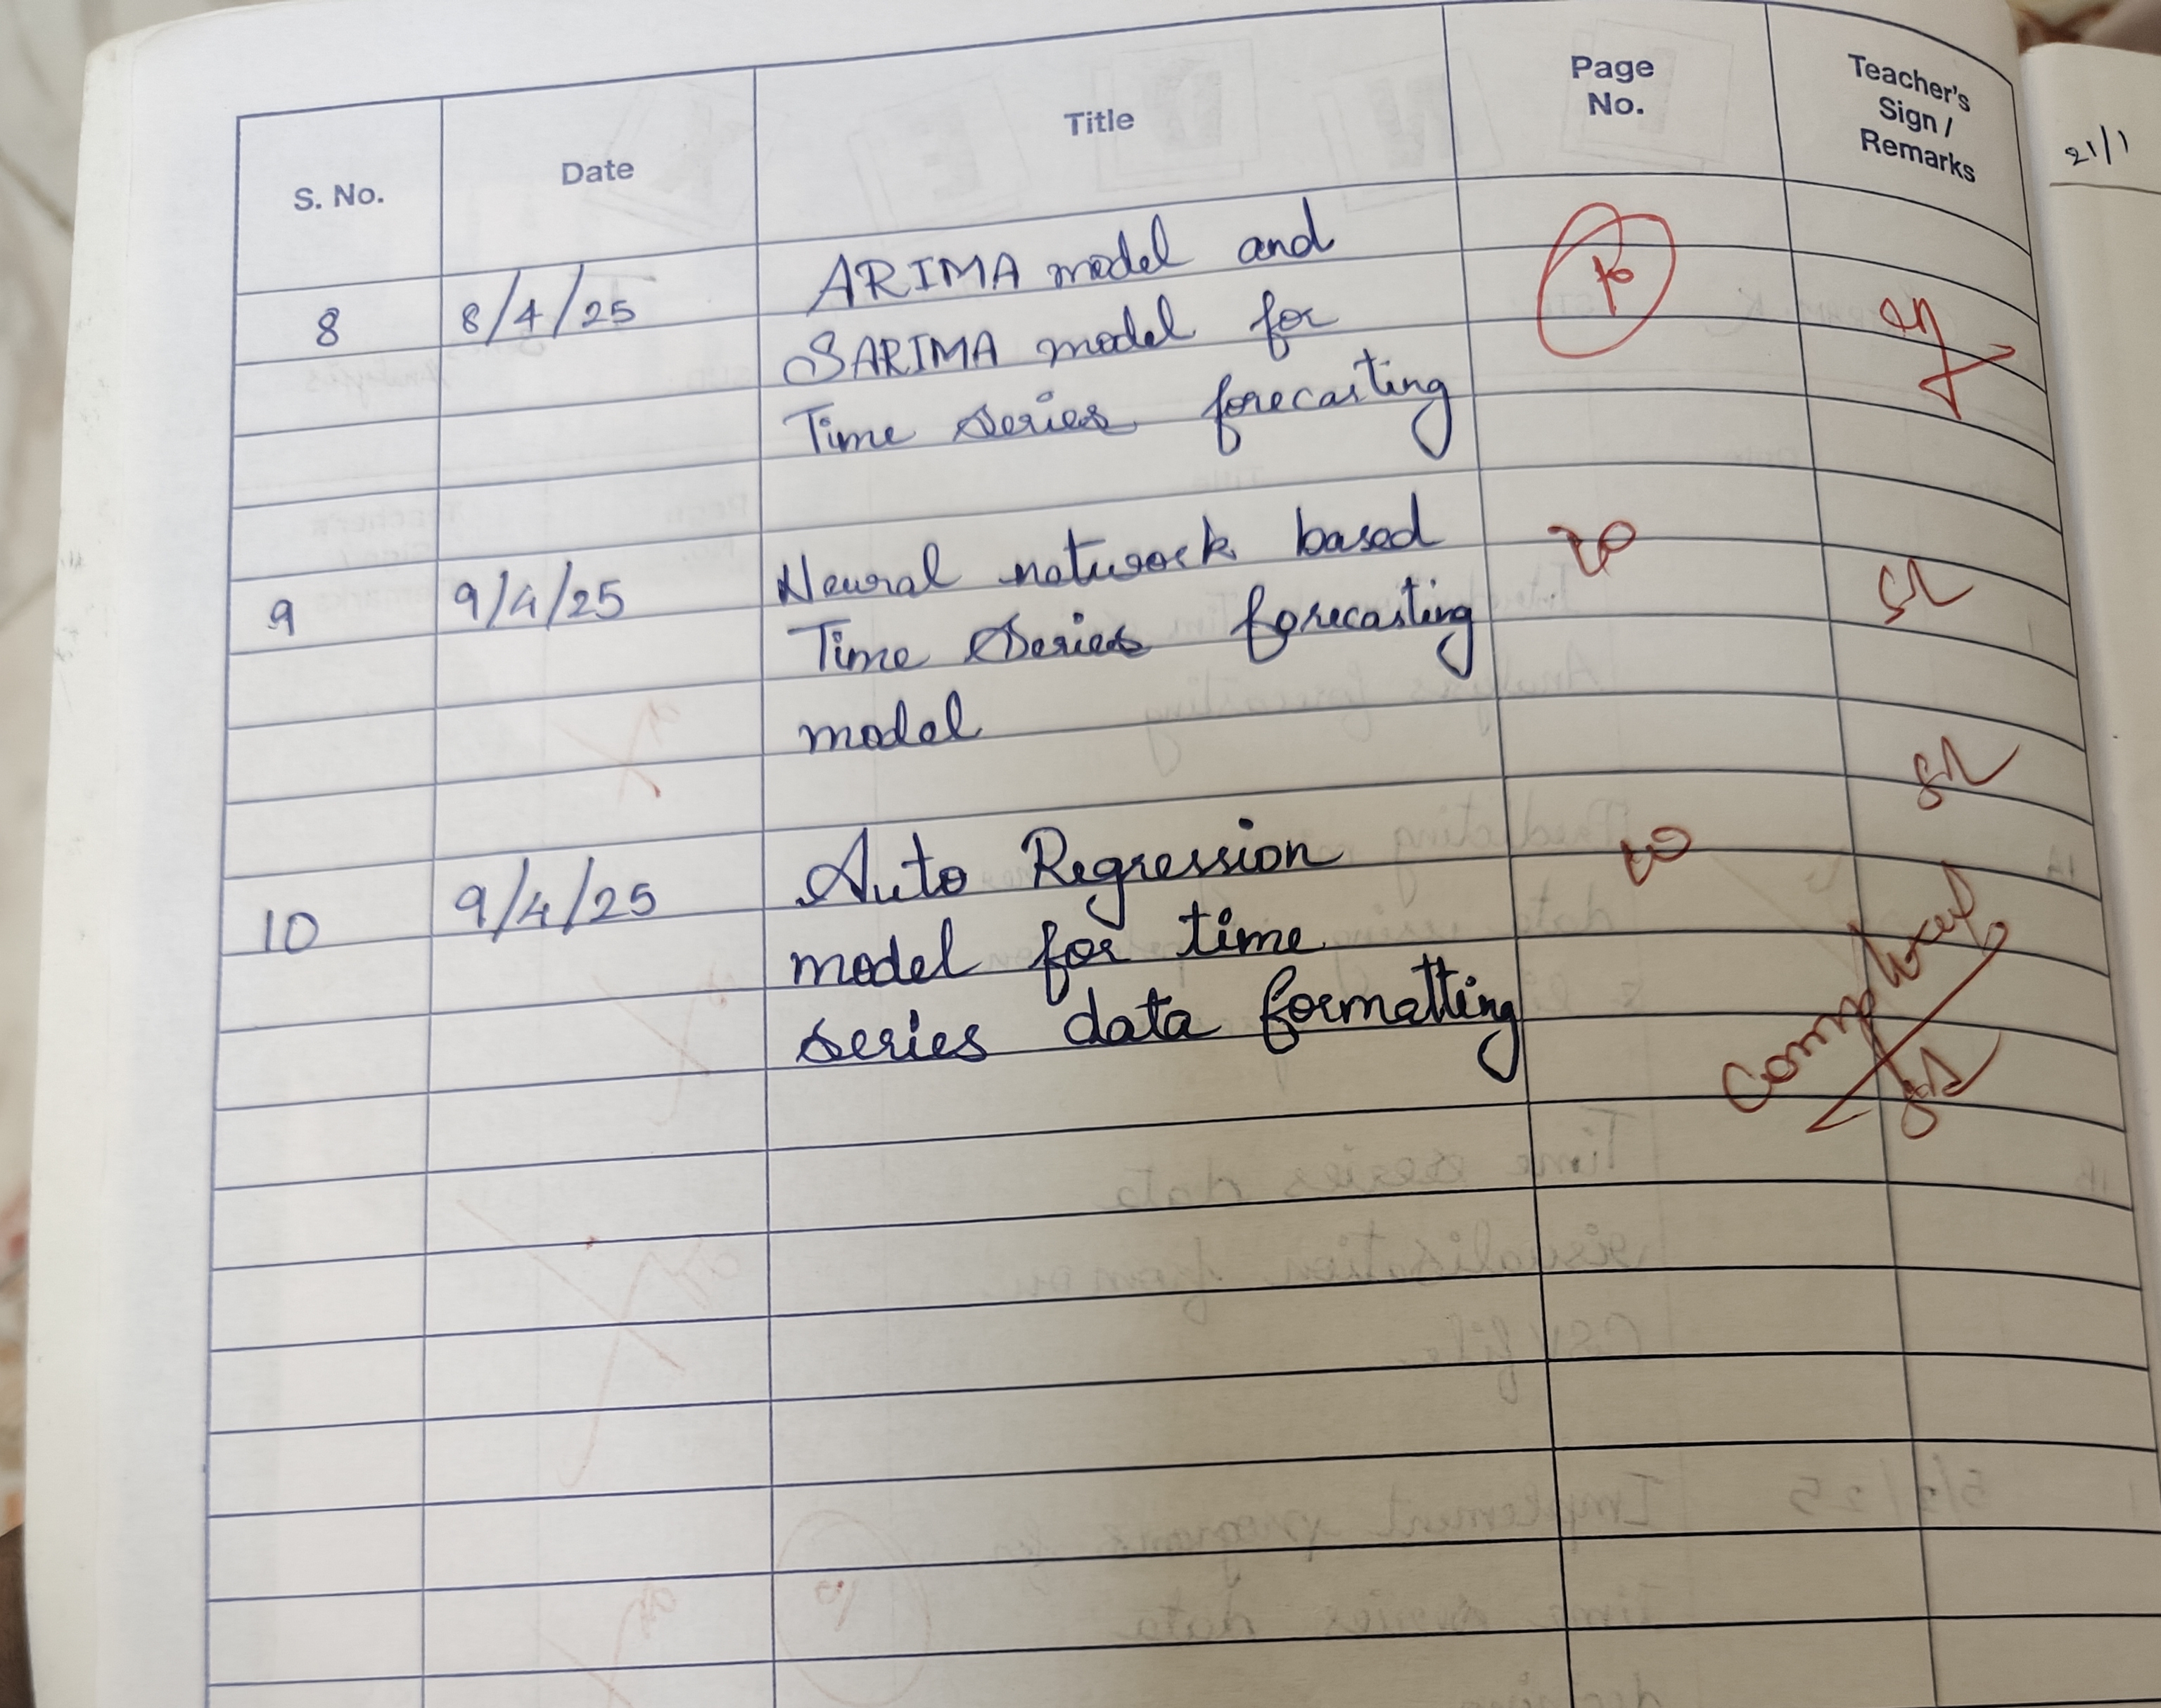 S. No.
Date
Title
Page
No.
Teacher's
Sign /
Remarks
21/1
8
8/4/25
ARIMA model and
SARIMA model for
Time series forecasting
10
9
9/4/25
Neural network based
Time Series forecasting
model
10
10
9/4/25
Auto Regression
model for time
series data formatting
10
Completed